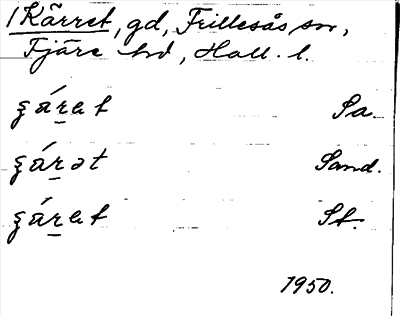 /Kärret, gd, Frillesås sn,
Fjäre hd, Hall. l.
ʂár̲et Sa.
ʂár̲ət Sand.
ʂár̲et St.
1950.